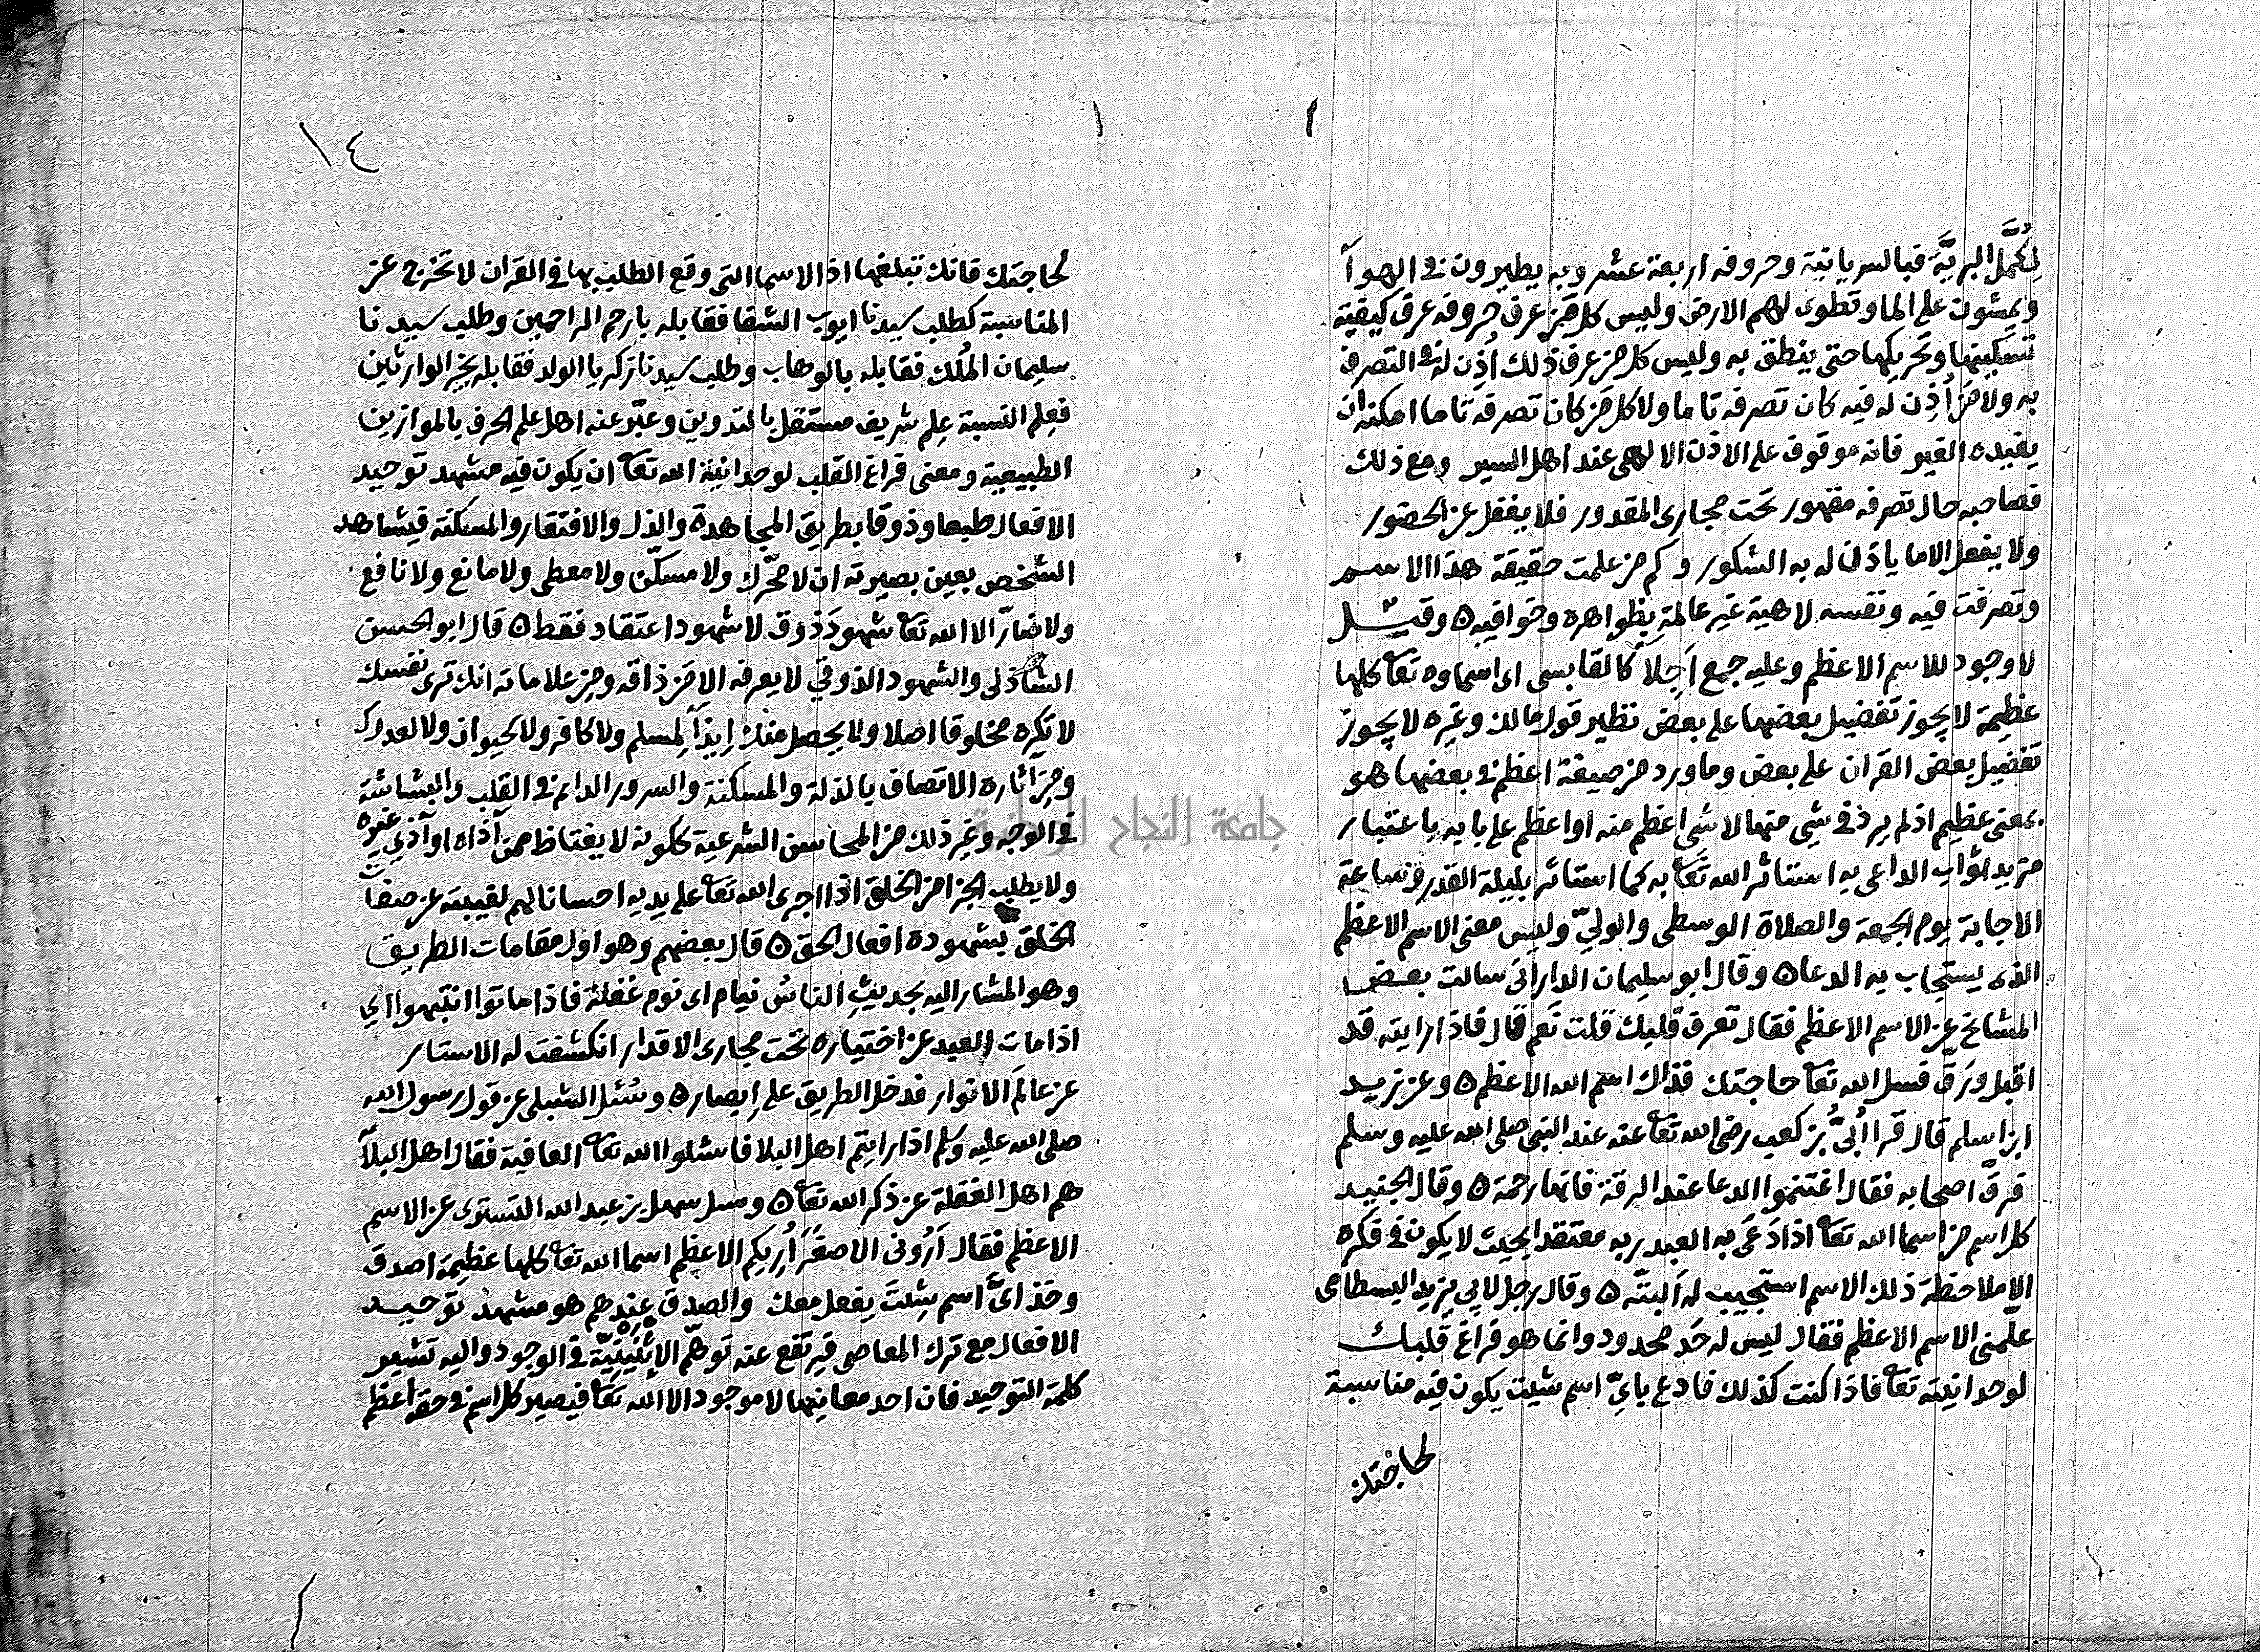 لِكُمَّلِ البريَّة فبالسريانية وحروفه اربعة عشر وبه يطيرون في الهوآ
ويمشون على الما وتطوى لهم الارض وليس كل من عرف حروفه عرف كيفية
تسكينها وتحريكها حتى ينطق به وليس كل من عرف ذلك أُذِن له في التصرف
به ولا من أُذِن له فيه كان تصرفه تاما ولا كل من كان تصرفه تاما امكنه ان
يفيده الغير فانه موقوف على الاذن الالهى عند اهل السير ومع ذلك
فصاحبه حال تصرفه مقهور تحت مجارى المقدور فلا يغفل عن الحضور
ولا يفعل الا ما ياذن له به الشكور وكم من علمت حقيقة هذا الاسم
وتصرفت فيه ونفسه لاهية غير عالمةٍ بظواهره وخوافيه ٥ وقيل
لا وجود للاسم الاعظم وعليه جمع اَجِلآ كالقابسى اى اسماوه تعا كلها
عظيمة لا يجوز تفضيل بعضها على بعض نظير قول مالك وغيره لا يجوز
تفضيل بعض القران على بعض وما ورد من صيغة اعظم في بعضها هو
بمعنى عظيم اذ لم يرد في شى منها لا شى اعظم منه او اعظم على بابه باعتبار
مزيد ثواب الداعى به استاثر الله تعا به كما استاثر بليلة القدر وساعة
الاجابة يوم الجمعة والصلاة الوسطى والوليّ وليس معنى الاسم الاعظم
الذى يستجاب به الدعا ٥ وقال ابو سليمان الدارانى سالت بعض
المشايخ عن الاسم الاعظم فقال تعرف قلبك قلت نَعم قال فاذا رايته قد
اقبل ورَقّ فسل الله تعا حاجتك فذاك اسم الله الاعظم ٥ وعن زيد
ابن اسلم قال قرا أُبَىُّ بن كعب رضى الله تعا عنه عند النبى صلى الله عليه وسلم
فرقّ اصحابه فقال اغتنموا الدعا عند الرقة فانها رحمة ٥ وقال الجنيد
كل اسم من اسما الله تعا اذا دَعَى به العبد ربه معتقدا بحيث لا يكون في فكره
الا ملاحظة ذلك الاسم استجيب له اَلبتّة ٥ وقال رجل لابى يزيد البسطامى
علّمنى الاسم الاعظم فقال ليس له حَد محدود وانما هو فراغ قلبك
لوحدانيته تعا فاذا كنت كذلك فادع باىّ اسم شيت يكون فيه مناسبة
لحاجتك
١٤
لحاجتك فانك تبلغها اذ الاسما التى وقع الطلب بها في القران لا تخرج عن
المناسبة كطلب سيدنا ايوب الشفا فقابله بارحم الراحمين وطلب سيدنا
سليمان المُلك فقابله بالوهاب وطلب سيدنا زكريا الولد فقابله بخير الوارثين
فعِلم النسبة علم شريف مستقل بالتدوين وعبّر عنه اهل علم الحرف بالموازين
الطبيعية ومعنى فراغ القلب لوحدانية الله تعا ان يكون فيه مشهد توحيد
الافعال طبعا وذوقا بطريق المجاهدة والذل والافتقار والمسكنة فيشاهد
الشخص بعين بصيرته ان لا محرّك ولا مسكّن ولا معطى ولا مانع ولا نافع
ولا ضارّ الا الله تعا شهود ذوق لا شهود اعتقاد فقط ٥ قال ابو الحسن
الشاذلى والشهود الذوقي لا يعرفه الا من ذاقه ومن علاماته انك ترى نفسك
لا تكره مخلوقا اصلا ولا يحصل منك ايذآ لمسلم ولا كافر ولا لحيوان ولا لعدوك
ومن آثاره الاتصاف بالذلة والمسكنة والسرور الدائم في القلب والبشاشة
في الوجه وغير ذلك من المحاسن الشرعية ككونه لا يغتاظ ممن آذاه او آذى غيره
ولا يطلب الجزا من الخلق اذا اجرى الله تعا على يديه احسانا لهم لغيبته عن صفات
الخلق بشهوده افعال الحق ٥ قال بعضهم وهو اول مقامات الطريق
وهو المشار اليه بحديثِ الناسُ نيام اى نوم غفلة فاذا ماتوا انتبهوا اي
اذا مات العبد عن اختياره تحت مجارى الاقدار انكشفت له الاستار
عن عالَم الانوار فدخل الطريق على ابصاره ٥ وسُئل الشبلى عن قول رسول الله
صلى الله عليه وسلم اذا رايتم اهل البلا فاسئلوا الله تعا العافية فقال اهل البلآ
هم اهل الغفلة عن ذكر الله تعا ٥ وسل سهل بن عبد الله التسترى عن الاسم
الاعظم فقال اَرُونى الاصغَر اُريكم الاعظم اسما الله تعا كلها عظيمة اصدق
وخذ اىَّ اسم شِئتَ يفعل معك والصدق عندهم هو مشهد توحيد
الافعال مع ترك المعاصى فيرتفع عنه توهّم الاِثْنَيْنِيّة في الوجود واليه تشير
كلمة التوحيد فان احد معانيها لا موجود الا الله تعا فيصير كل اسم في حقه اعظم
جامعة النجاح الوطنية